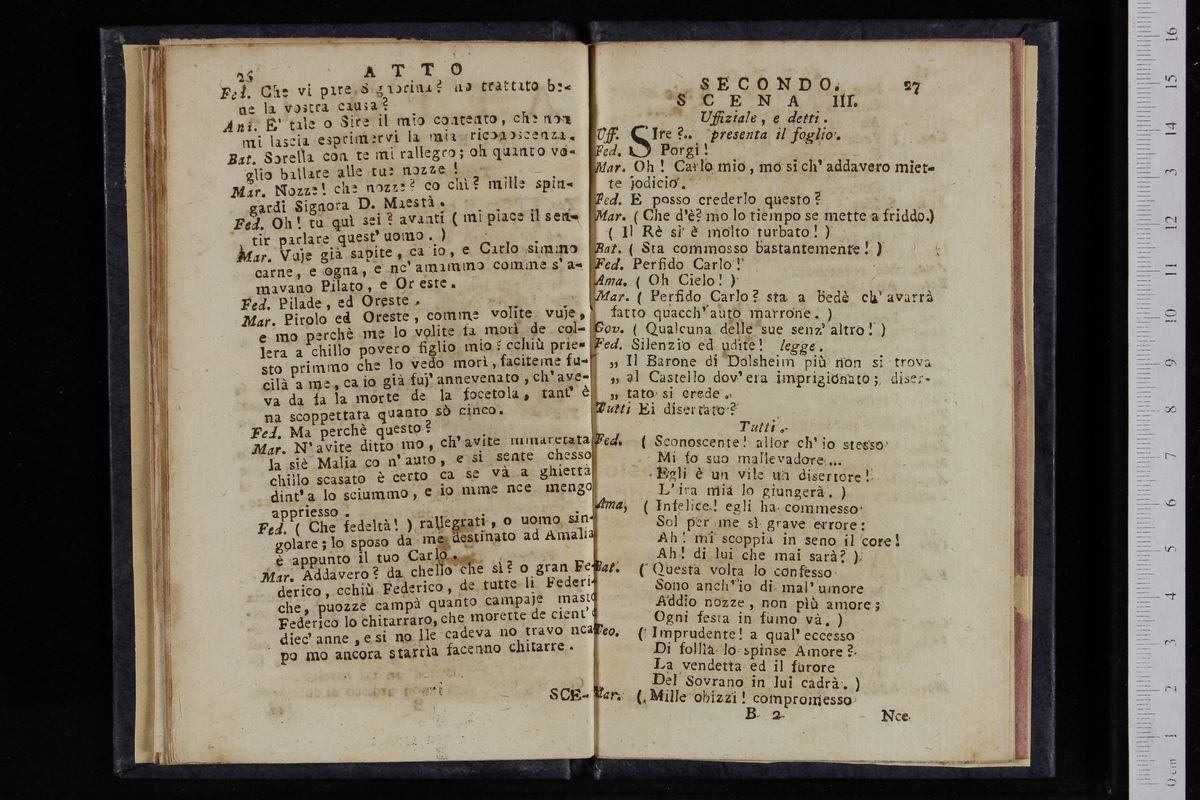 26 ATTO
Fed. Che vi pare Signorina? ho trattato be-
ne la vostra causa?
Ani. E' tale o Sire il mio contento, che non
mi lascia esprimervi la mia riconoscenza.
Bat. Sorella con te mi rallegro; oh quanto vo-
glio ballare alle tue nozze!
Mar. Nozze! che nozze? co chì? mille spin-
gardi Signora D. Maestà.
Fed. Oh! tu quì sei? avanti (mi piace il sen-
tir parlare quest' uomo.)
Mar. Vuje già sapite, ca io, e Carlo simmo
carne, e ogna, e nc' amammo comme s' a-
mavano Pilato, e Oreste.
Fed. Pilade, ed Oreste.
Mar. Pirolo ed Oreste, comme volite vuje,
e mo perchè me lo volite fa morì de col-
lera a chillo povero figlio mio? cchiù prie-
sto primmo che lo vedo morì, faciteme fu-
cilà a me, ca io già fuj' annevenato, ch' ave-
va da fa la morte de la focetola, tant' è
na scoppettata quanto sò cinco.
Fed. Ma perchè questo?
Mar. N' avite ditto mo, ch' avite mmaretata
la siè Malia co n' auto, e si sente chesso
chillo scasato è certo ca se và a ghietta
dint' a lo sciummo, e io mme nce mengo
appriesso.
Fed. (Che fedeltà!) rallegrati, o uomo sin-
golare; lo sposo da me destinato ad Amalia
è appunto il tuo Carlo.
Mar. Addavero? da chello che sì? o gran Fe-
derico, cchiù Federico, de tutte li Federi-
che, puozze campà quanto campaje masto
Federico lo chitarraro, che morette de cient' e
diec' anne, e si no lle cadeva no travo nca-
po mo ancora starria facenno chitarre.
SCE-
SECONDO. 27
SCENA III.
Uffiziale, e detti.
Uff. SIre?.. presenta il foglio.
Fed. Porgi!
Mar. Oh! Carlo mio, mo si ch' addavero miet-
te jodicio.
Fed. E posso crederlo questo?
Mar. (Che d'è? mo lo tiempo se mette a friddo.)
(Il Rè si è molto turbato!)
Bat. (Sta commosso bastantemente!)
Fed. Perfido Carlo!
Ama. (Oh Cielo!)
Mar. (Perfido Carlo? sta a bedè ch' avarrà
fatto quacch' auto marrone.)
Gov. (Qualcuna delle sue senz' altro!)
Fed. Silenzio ed udite! legge.
„ Il Barone di Dolsheim più non si trova
„ al Castello dov' era imprigionato; diser-
„ tato si crede.
Tutti Ei disertato?
Tutti.
Fed. (Sconoscente! allor ch' io stesso
Mi fo suo mallevadore...
Egli è un vile un disertore!
L' ira mia lo giungerà.)
Ama, (Infelice! egli ha commesso
Sol per me sì grave errore:
Ah! mi scoppia in seno il core!
Ah! di lui che mai sarà?)
Bat. (Questa volta lo confesso
Sono anch' io di mal' umore
Addio nozze, non più amore;
Ogni festa in fumo và.)
Teo. (Imprudente! a qual' eccesso
Di follìa lo spinse Amore?
La vendetta ed il furore
Del Sovrano in lui cadrà.)
Mar. (Mille obizzi! compromesso
B 2 Nce